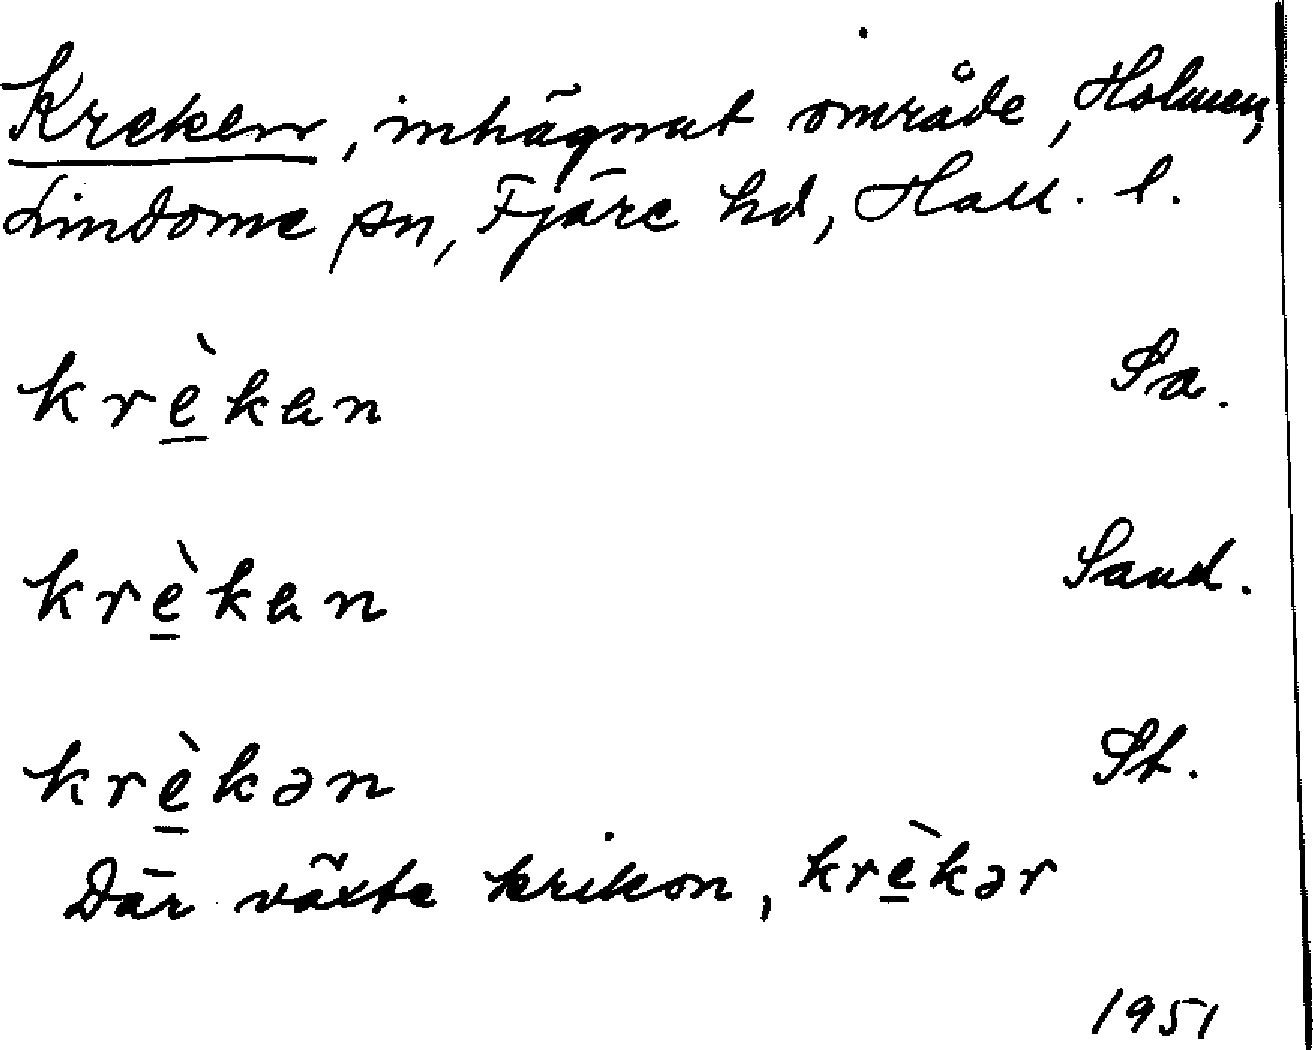 Kreken, inhägnat område, Holmen,
Lindome sn, Fjäre hd, Hall. l.
krè̱ken Sa.
krè̱ken Sand.
krè̱kən St.
Där växte krikon, krè̱kər
1951